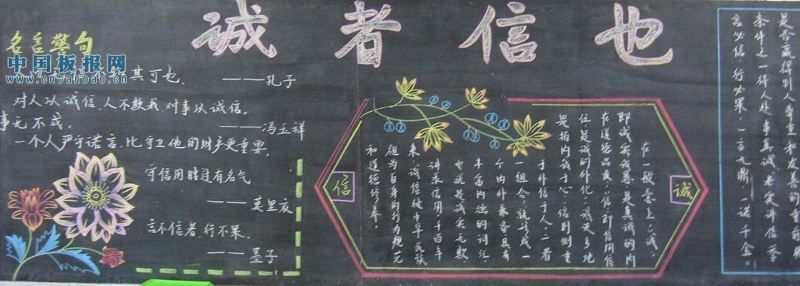 诚者信也
名言警句
中国板报网
www.banbao.cn
信 其可也
——孔子
对人以诚信,人不欺我 对事以诚信,
事无不成。
——冯玉祥
一个人严守诺言,比守卫他的财产更重要。
守信用胜过有名气
——莫里哀
言不信者,行不果。
——墨子
信
诚
在一般意义上,“诚”
即诚实诚恳,是真诚的内
在道德品质;“信”即信用信
任,是“诚”的外化。“诚”更多地
是指“内诚于心”,“信”则侧重
于“外信于人”。二者
组合,就形成一
个内外兼备具有
丰富内涵的词汇
也就是诚实无欺
讲求信用。千百年
来,诚信被中华民族
视为自身的行为规范
和道德修养。
是否赢得别人尊重和友善的重要
条件之一。待人处事真诚老实讲信誉
言必信,行必果,一言九鼎,一诺千金。